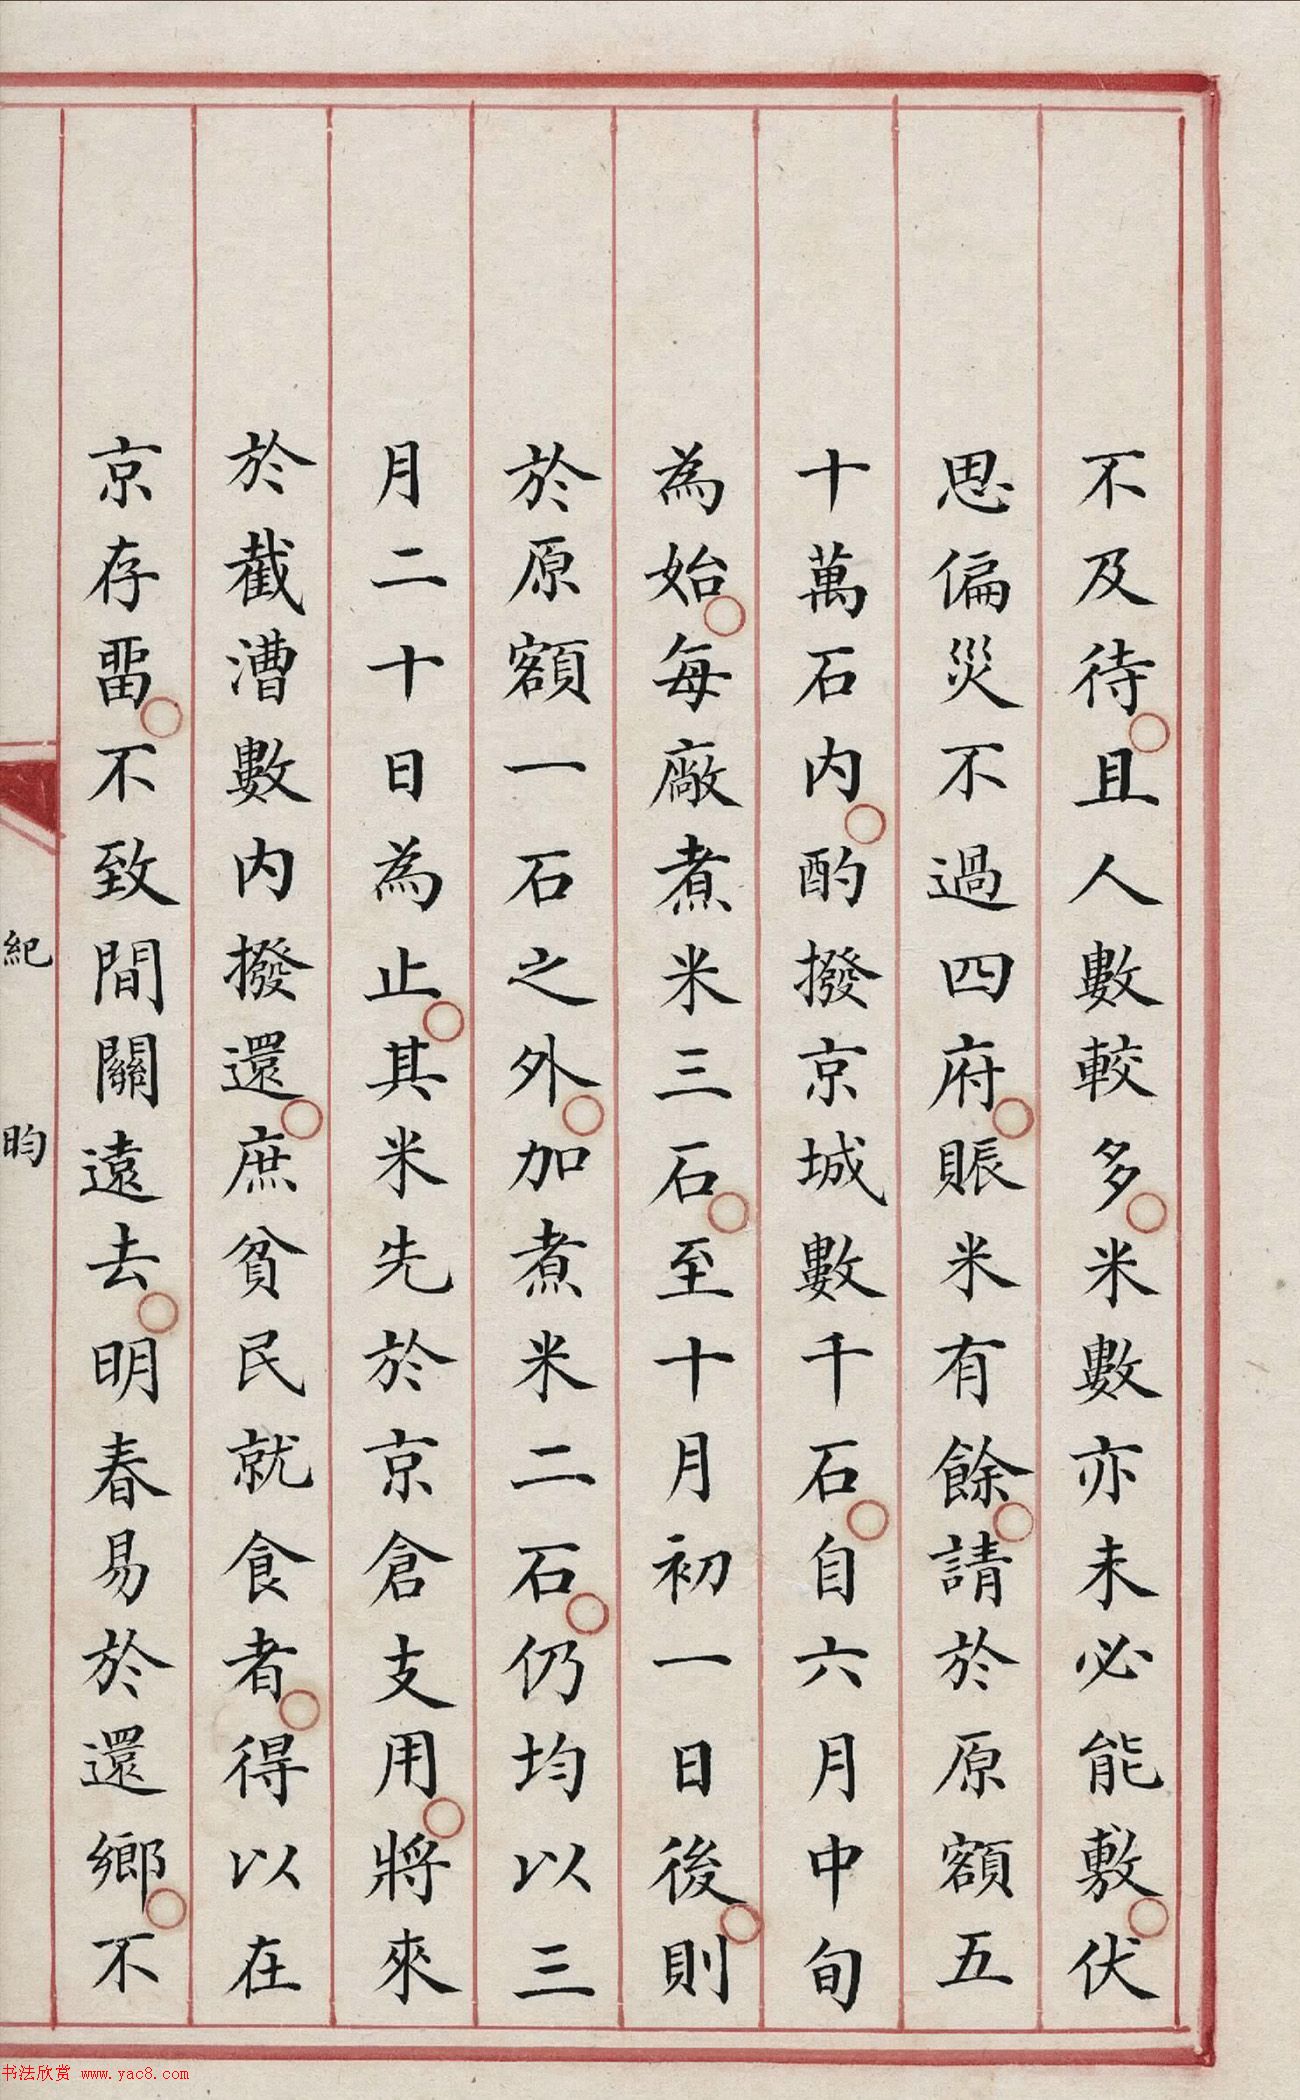 不及待○且人數較多○米數亦未必能敷○伏
思偏災不過四府○賬米有餘○請於原額五
十萬石内○酌撥京城數千石○自六月中旬
為始○每廠煮米三石○至十月初一日後○則
於原額一石之外○加煮米二石○仍均以三
月二十日為止○其米先於京倉支用○將來
於截漕數内撥還○庶貧民就食者○得以在
京存畱○不致間關遠去○明春易於還鄉○不
紀昀
书法欣赏 www.yac8.com